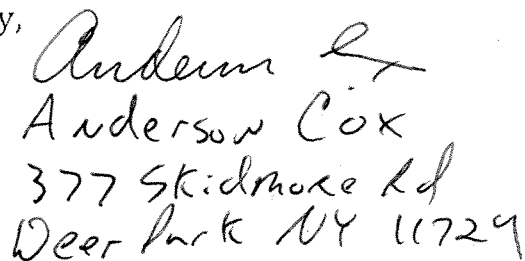 y,
Anderson Cox
Anderson Cox
377 Skidmore Rd
Deer Park NY 11729